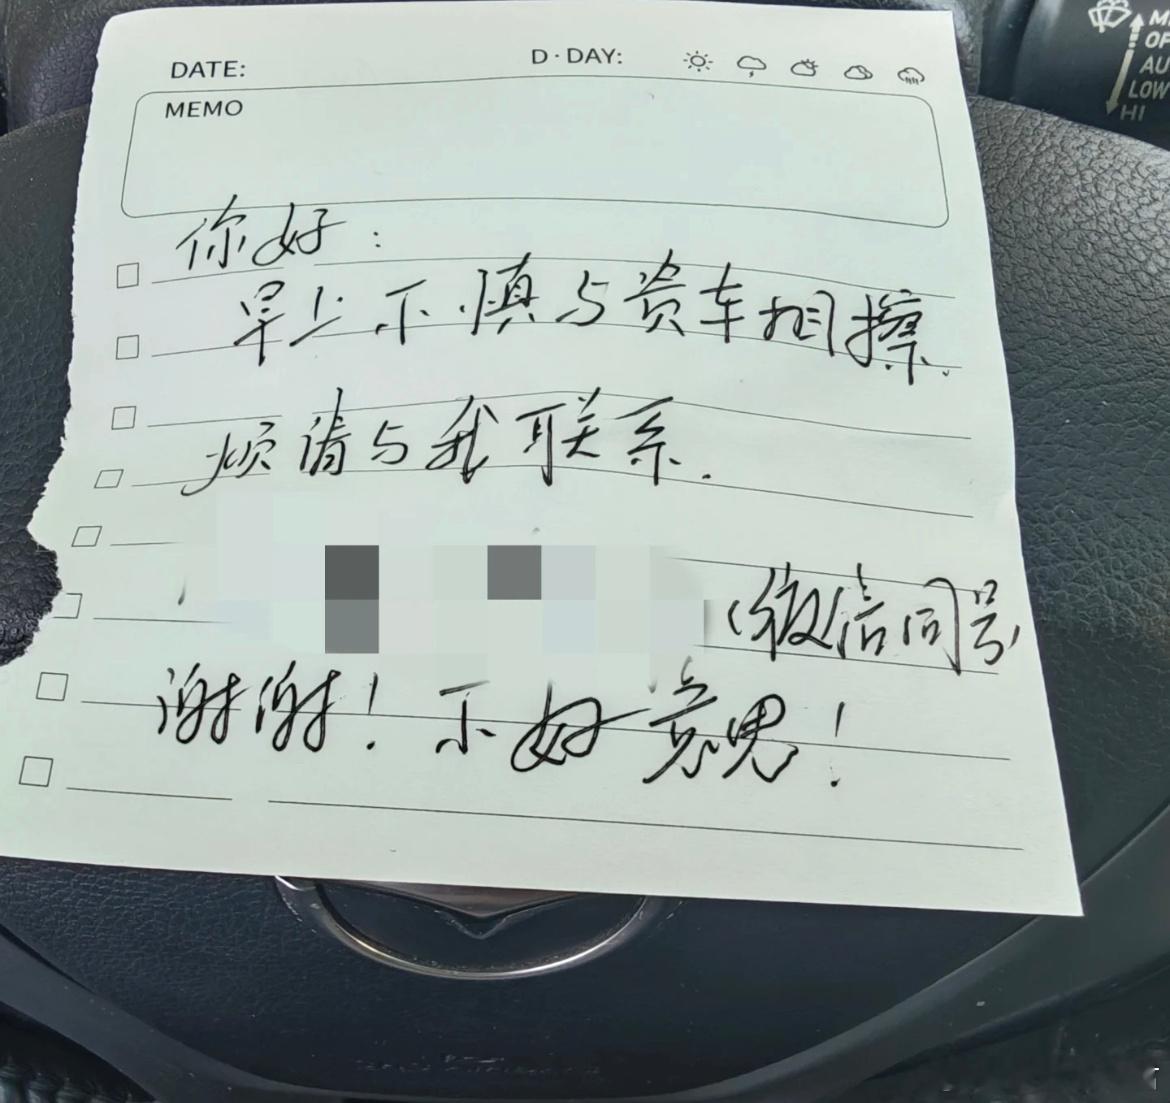 DATE: D·DAY:
MEMO
你好:
早上不慎与贵车相擦.
烦请与我联系.
(微信同号)
谢谢!不好意思!
OF
AU
LOW
HI